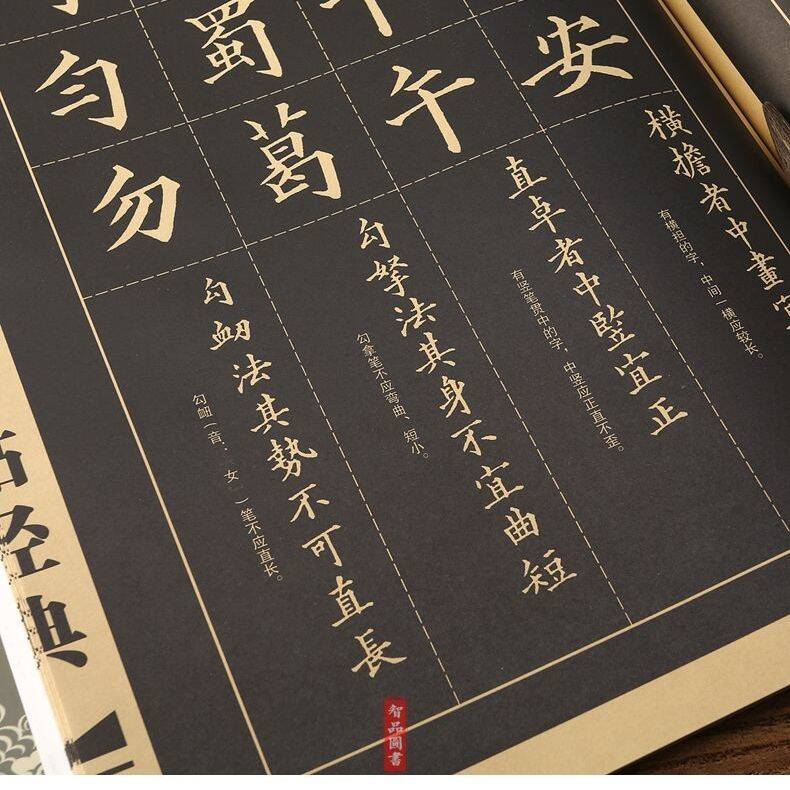 安
橫擔者中畫
有横担的字，中间一横应较长。
午
直卓者中竪宜正
有竖笔贯中的字，中竖应正直不歪。
蜀葛
勾拏法其身不宜曲短
勾拿笔不应弯曲、短小。
匀勿
勾衄法其勢不可直長
勾衄（音： 女 ）笔不应直长。
经典
智品圖書